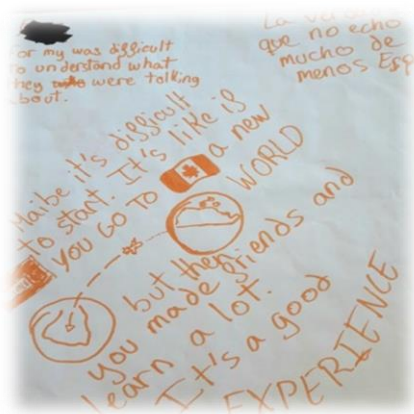 or my was difficult
to understand what
they were talking
about.
La verdad
que no echo
mucho de
menos Esp
Maibe it's difficult
to start. It's like if
YOU GO TO a new
WORLD
but then
you made friends and
learn a lot.
It's a good
EXPERIENCE